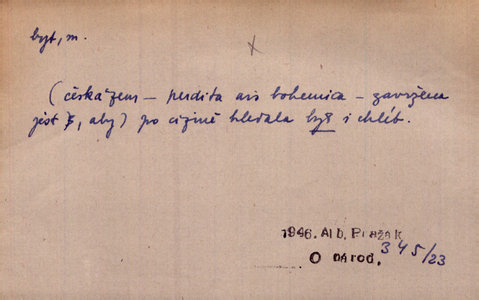 byt, m.
(česká zem – perdita ovis bohemica – zavržena
jest, aby) po cizině hledala byt i chléb.
1946. Alb. Pražák
O národ. 345/23